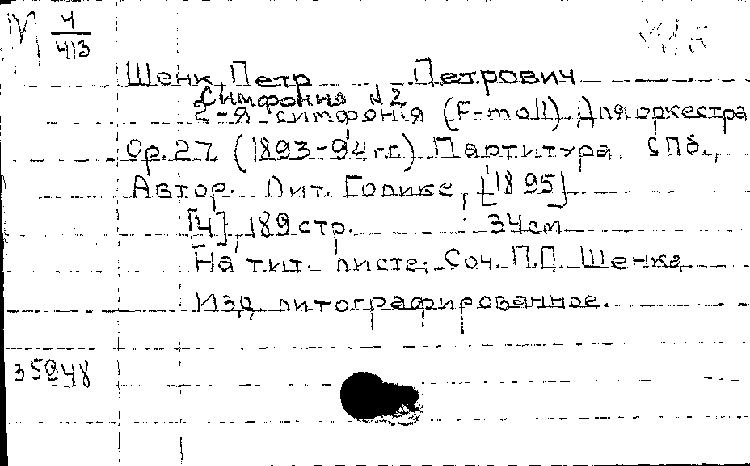 М 4/413
Шенк, Петр Петрович
Симфония №2
2-я симфония (F-moll). Для оркестра
Op. 27. (1893-94 гг.) Партитура. СПб.,
Автор. Лит. Голике, [1895].
[4], 189 стр. 34 см
На тит. листе: Соч. П.П. Шенка
Изд. литографированное.
35248